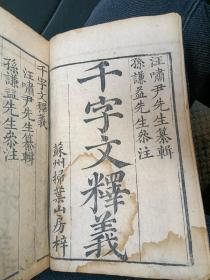 汪嘯尹先生纂輯
孫謙益先生參注
千字文釋義
蘇州掃葉山房梓
千字文釋義
汪嘯尹先生纂輯
孫謙益先生參注